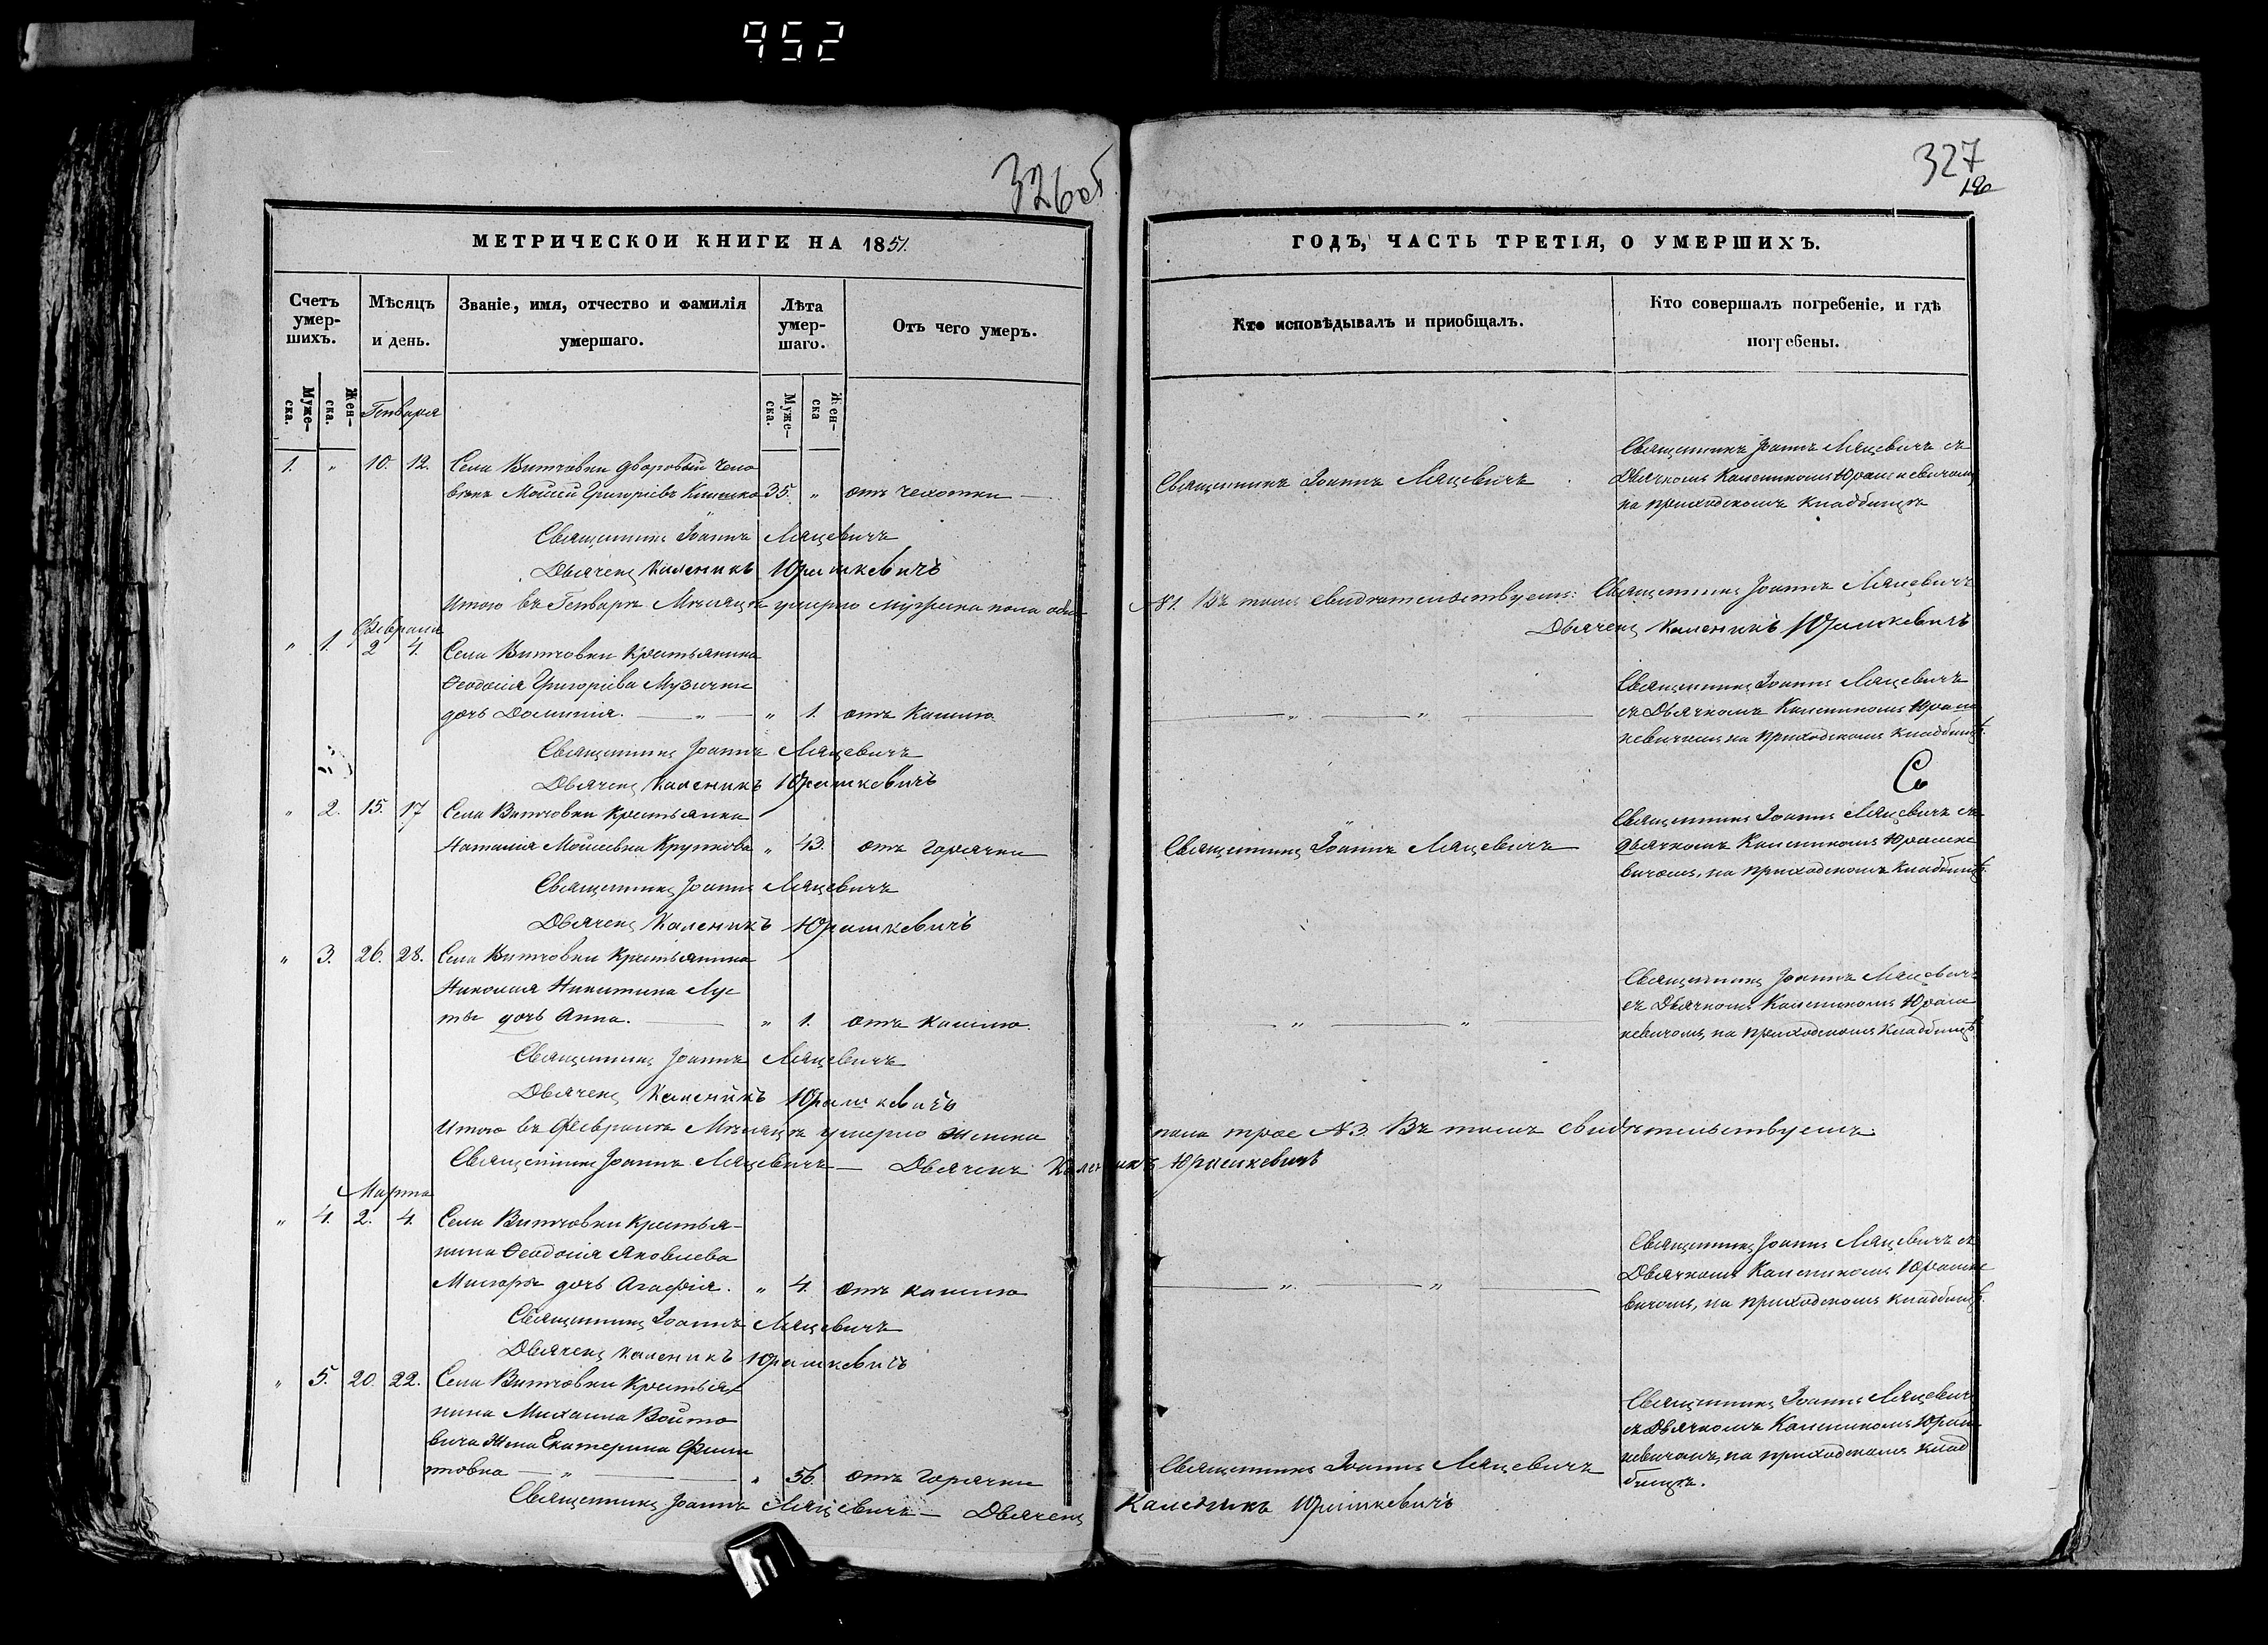 952
326 об
327
МЕТРИЧЕСКОИ КНИГЕ НА 1851.
ГОДЪ, ЧАСТЬ ТРЕТІЯ, О УМЕРШИХЪ.
Счетъ умер-шихъ.
Мѣсяцъ и день.
Званіе, имя, отчество и фамилія умершаго.
Лѣта умер-шаго.
Отъ чего умеръ.
Кто исповѣдывалъ и приобщалъ.
Кто совершалъ погребеніе, и гдѣ погребены.
Муже-ска.
Жен-ска.
Муже-ска.
Жен-ска
Генваря
1. " 10. 12. Села Витчовки дворовый чело
вѣкъ Мойсей Григоріевъ 35. " отъ чехотки
Священникъ Іоаннъ Ляцевичъ
Священникъ Іоаннъ Ляцевичъ съ
Дьячкомъ Калеником Юрашкевичомъ
на приходскомъ кладбищѣ
Священникъ Іоаннъ Ляцевичъ
Дьячекъ Каленикъ Юрашкевичъ
Итого въ Генварѣ Мѣсяцѣ умерло мужеска пола одинъ
№1. Въ томъ свидѣтельствуемъ: Священникъ Іоаннъ Ляцевичъ
Дьячекъ Каленикъ Юрашкевичъ
Февраля
" 1. 2 4. Села Витчовки Крестьянина
Ѳеодосія Григоріева Музички
дочь Домникія. " 1. отъ Кашлю
Священникъ Іоаннъ Ляцевичъ
съ Дьячкомъ Калеником Юраш
кевичемъ на приходскомъ кладбищѣ.
Священникъ Іоаннъ Ляцевичъ
Дьячекъ Каленикъ Юрашкевичъ
" 2. 15. 17 Села Витчовки Крестьянка
Наталія Мойсеевна Крупкова " 43. отъ горячки
Священникъ Іоаннъ Ляцевичъ
Священникъ Іоаннъ Ляцевичъ съ
дьячкомъ Калеником Юрашке
вичомъ, на приходскомъ кладбищѣ.
Священникъ Іоаннъ Ляцевичъ
Дьячекъ Каленикъ Юрашкевичъ
" 3. 26. 28. Села Витчовки Крестьянина
Николая Никитина Лус
ты дочь Анна. " 1. отъ кашлю.
Священникъ Іоаннъ Ляцевичъ
съ Дьячкомъ Калеником Юраш
кевичомъ, на приходскомъ кладбищѣ.
Священникъ Іоаннъ Ляцевичъ
Дьячекъ Каленикъ Юрашкевичъ
Итого въ Февралѣ Мѣсяцѣ умерло женска
пола трое №3. Въ томъ свидѣтельствуемъ
Священникъ Іоаннъ Ляцевичъ — Дьячекъ Каленикъ Юрашкевичъ
Марта
" 4. 2. 4. Села Витчовки Крестья-
нина Ѳеодосія Яковлева
дочь Агафія. " 4. отъ кашлю
Священникъ Іоаннъ Ляцевичъ съ
Дьячкомъ Калеником Юрашке
вичомъ, на приходскомъ кладбищѣ.
Священникъ Іоаннъ Ляцевичъ
Дьячекъ Каленикъ Юрашкевичъ
" 5. 20. 22. Села Витчовки Крестья-
нина Михаила Войто
вича жена Екатерина Фили
повна " 56 отъ горячки
Священникъ Іоаннъ Ляцевичъ
Священникъ Іоаннъ Ляцевичъ
съ Дьячкомъ Калеником Юраш
кевичомъ, на приходскомъ клад
бищѣ.
Священникъ Іоаннъ Ляцевичъ — Дьячекъ Каленикъ Юрашкевичъ